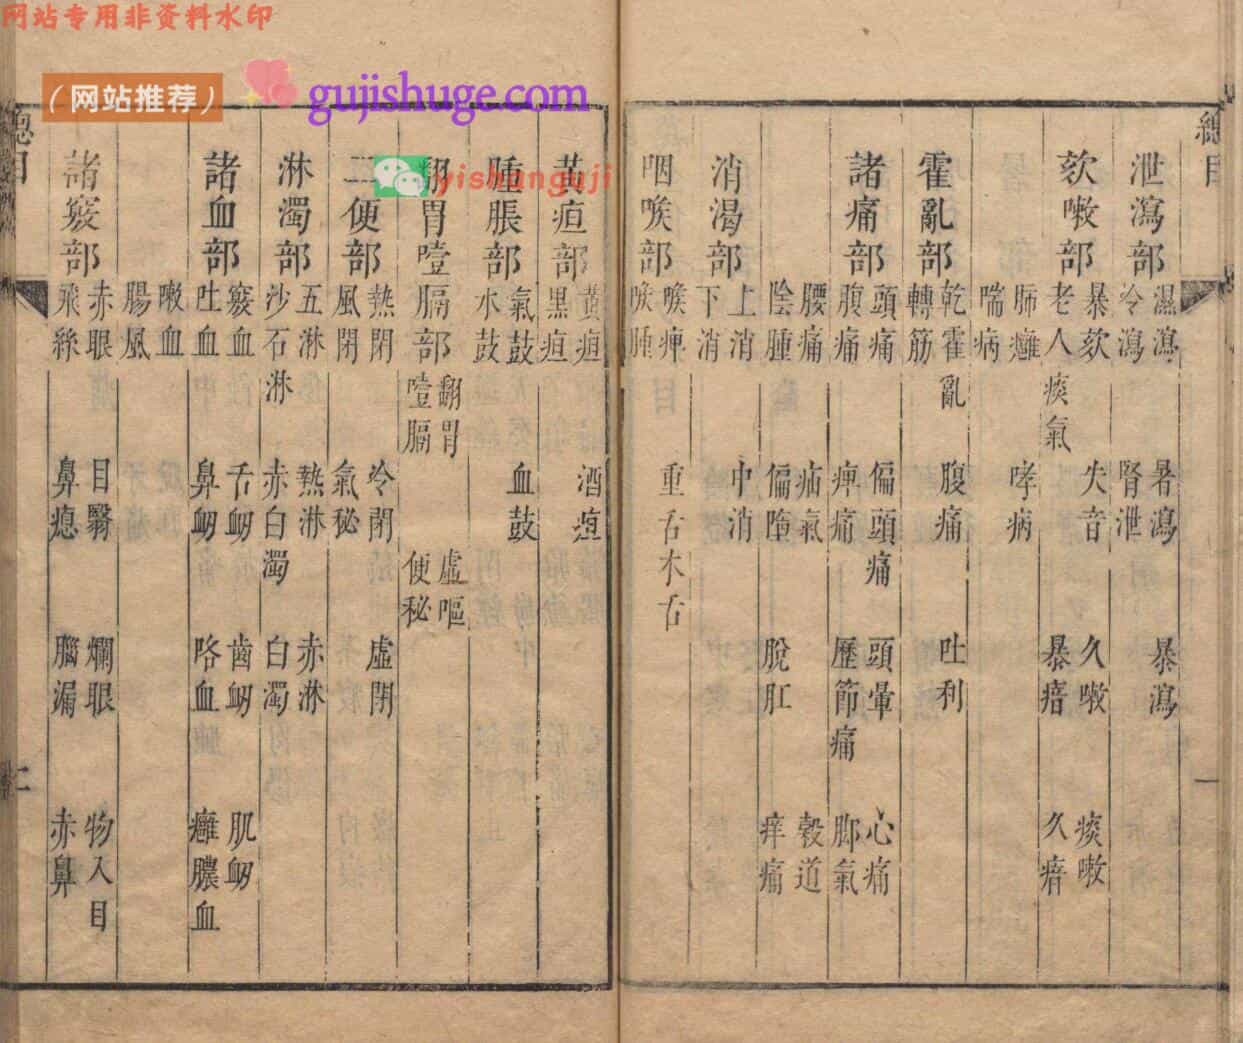 网站专用非资料水印
（网站推荐）
gujishuge.com
yishanguji
總目
一
泄瀉部
濕瀉 暑瀉 暴瀉
冷瀉 腎泄
欬嗽部
暴欬 失音 久嗽 痰嗽
老人痰氣 暴瘖 久瘖
肺癰 哮病
喘病
霍亂部
乾霍亂 腹痛 吐利
轉筋
諸痛部
頭痛 偏頭痛 頭暈 心痛
腹痛 痺痛 歷節痛 脚氣
腰痛 疝氣 穀道
陰腫 偏墮 脫肛 痒痛
消渴部
上消 中消
下消
咽喉部
喉痺 重舌木舌
喉腫
黄疸部
黄疸 酒疸
黑疸
腫脹部
氣鼓 血鼓
水鼓
翻胃噎膈部
翻胃 虛嘔
噎膈 便秘
二便部
熱閉 冷閉 虛閉
風閉 氣秘
淋濁部
五淋 熱淋 赤淋
沙石淋 赤白濁 白濁
諸血部
竅血 舌衂 齒衂 肌衂
吐血 鼻衂 咯血 癰膿血
嗽血
腸風
諸竅部
赤眼 目翳 爛眼 物入目
飛絲 鼻瘜 腦漏 赤鼻
總目
二